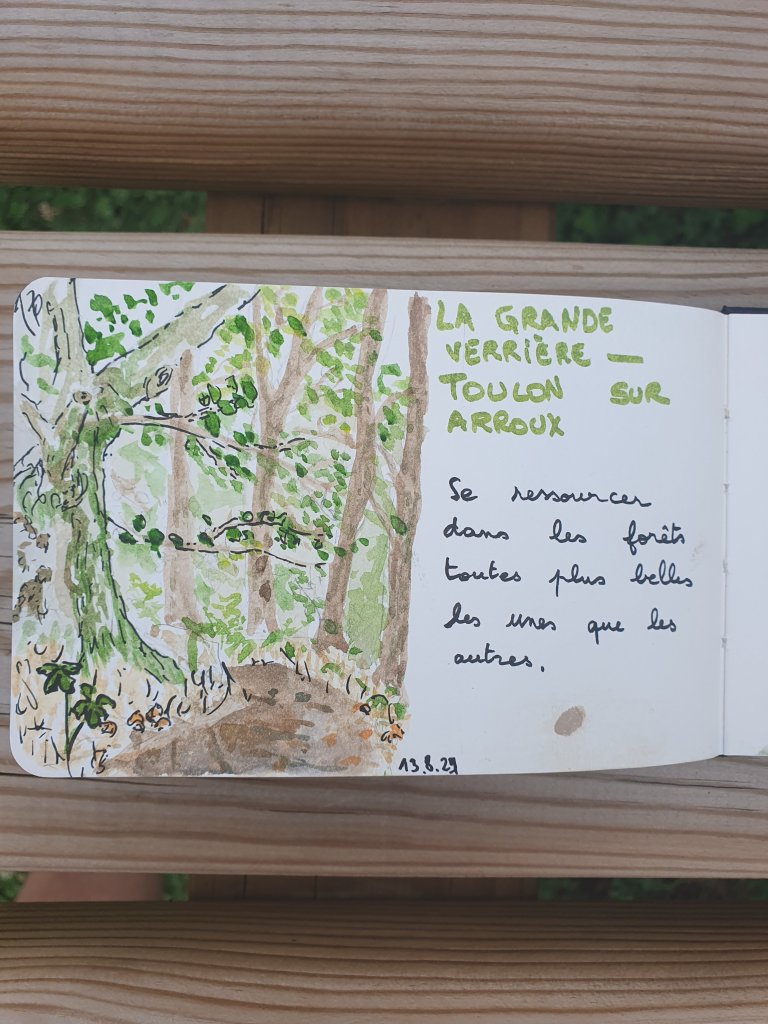 LA GRANDE
VERRIÈRE —
TOULON SUR
ARROUX
Se ressourcer
dans les forêts
toutes plus belles
les unes que les
autres.